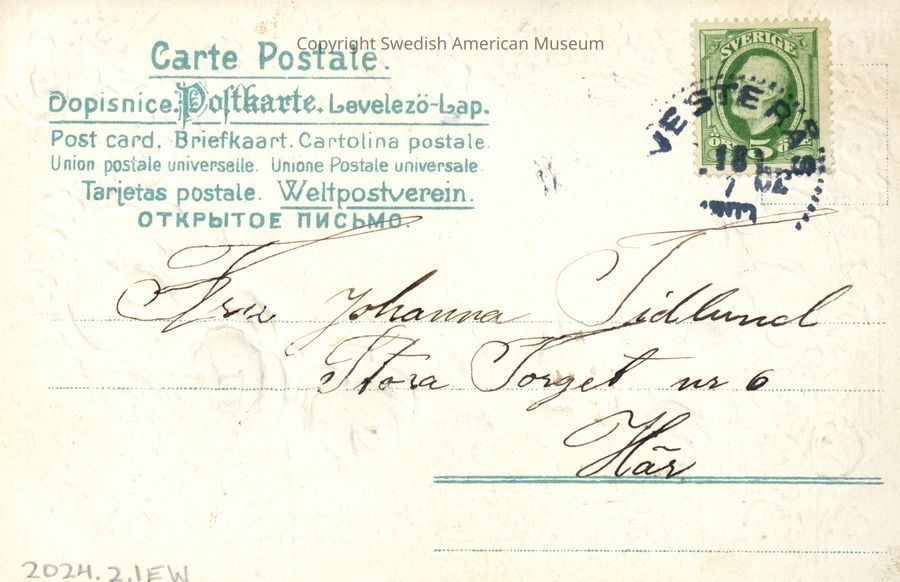 Copyright Swedish American Museum
Carte Postale.
Dopisnice. Postkarte. Levelező-Lap.
Post card. Briefkaart. Cartolina postale.
Union postale universelle. Unione Postale universale
Tarjetas postale. Weltpostverein.
ОТКРЫТОЕ ПИСЬМО.
SVERIGE
5
VESTERÅS
Johanna Tidlund
Stora Torget nr 6
Här
2024.2.1EW